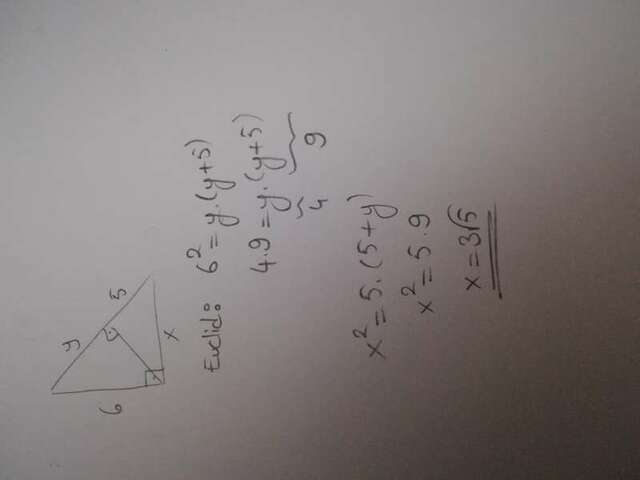 6
y
5
x
Euclid: 6² = y.(y+5)
4.9 = y.(y+5)
4 9
x² = 5.(5+y)
x² = 5.9
x = 3√5